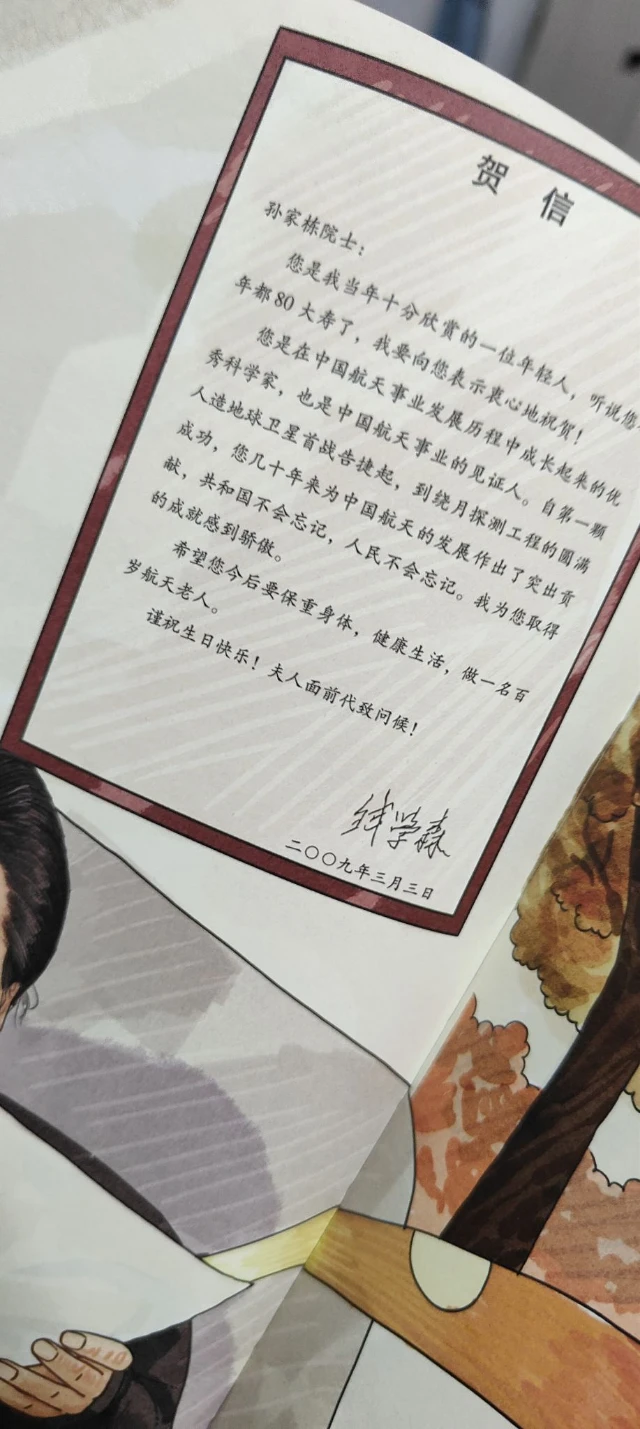 贺 信
孙家栋院士：
您是我当年十分欣赏的一位年轻人，听说您
年都80大寿了，我要向您表示衷心地祝贺！
您是在中国航天事业发展历程中成长起来的优
秀科学家，也是中国航天事业的见证人。自第一颗
人造地球卫星首战告捷起，到绕月探测工程的圆满
成功，您几十年来为中国航天的发展作出了突出贡
献，共和国不会忘记，人民不会忘记。我为您取得
的成就感到骄傲。
希望您今后要保重身体，健康生活，做一名百
岁航天老人。
谨祝生日快乐！夫人面前代致问候！
钱学森
二〇〇九年三月三日